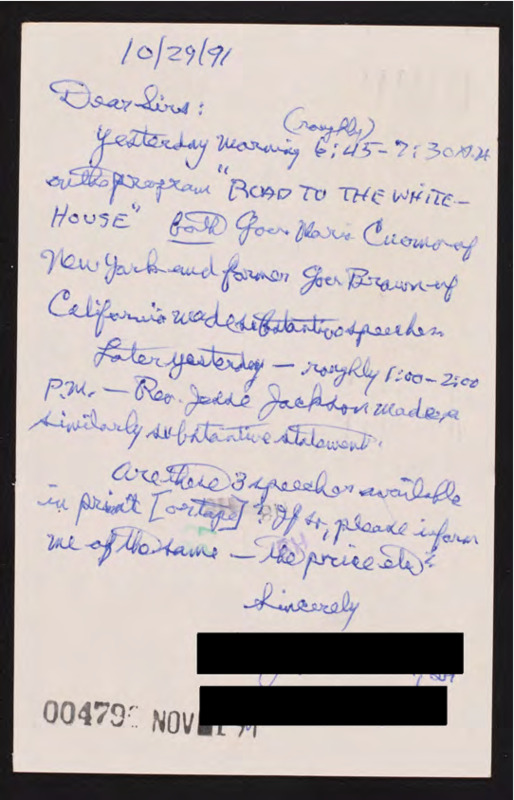 10/29/91
Dear Sirs:
(roughly)
Yesterday morning 6:45-7:30 A.M.
on the program "ROAD TO THE WHITE-
HOUSE" both Gov. Mario Cuomo of
New York and former Gov Brown of
California made substantive speeches.
Later yesterday — roughly 1:00-2:00
P.M. — Rev. Jesse Jackson made a
similarly substantive statement.
Are these 3 speeches available
in print [or tape]? If so, please inform
me of the same — the price etc.
Sincerely
00479 NOV